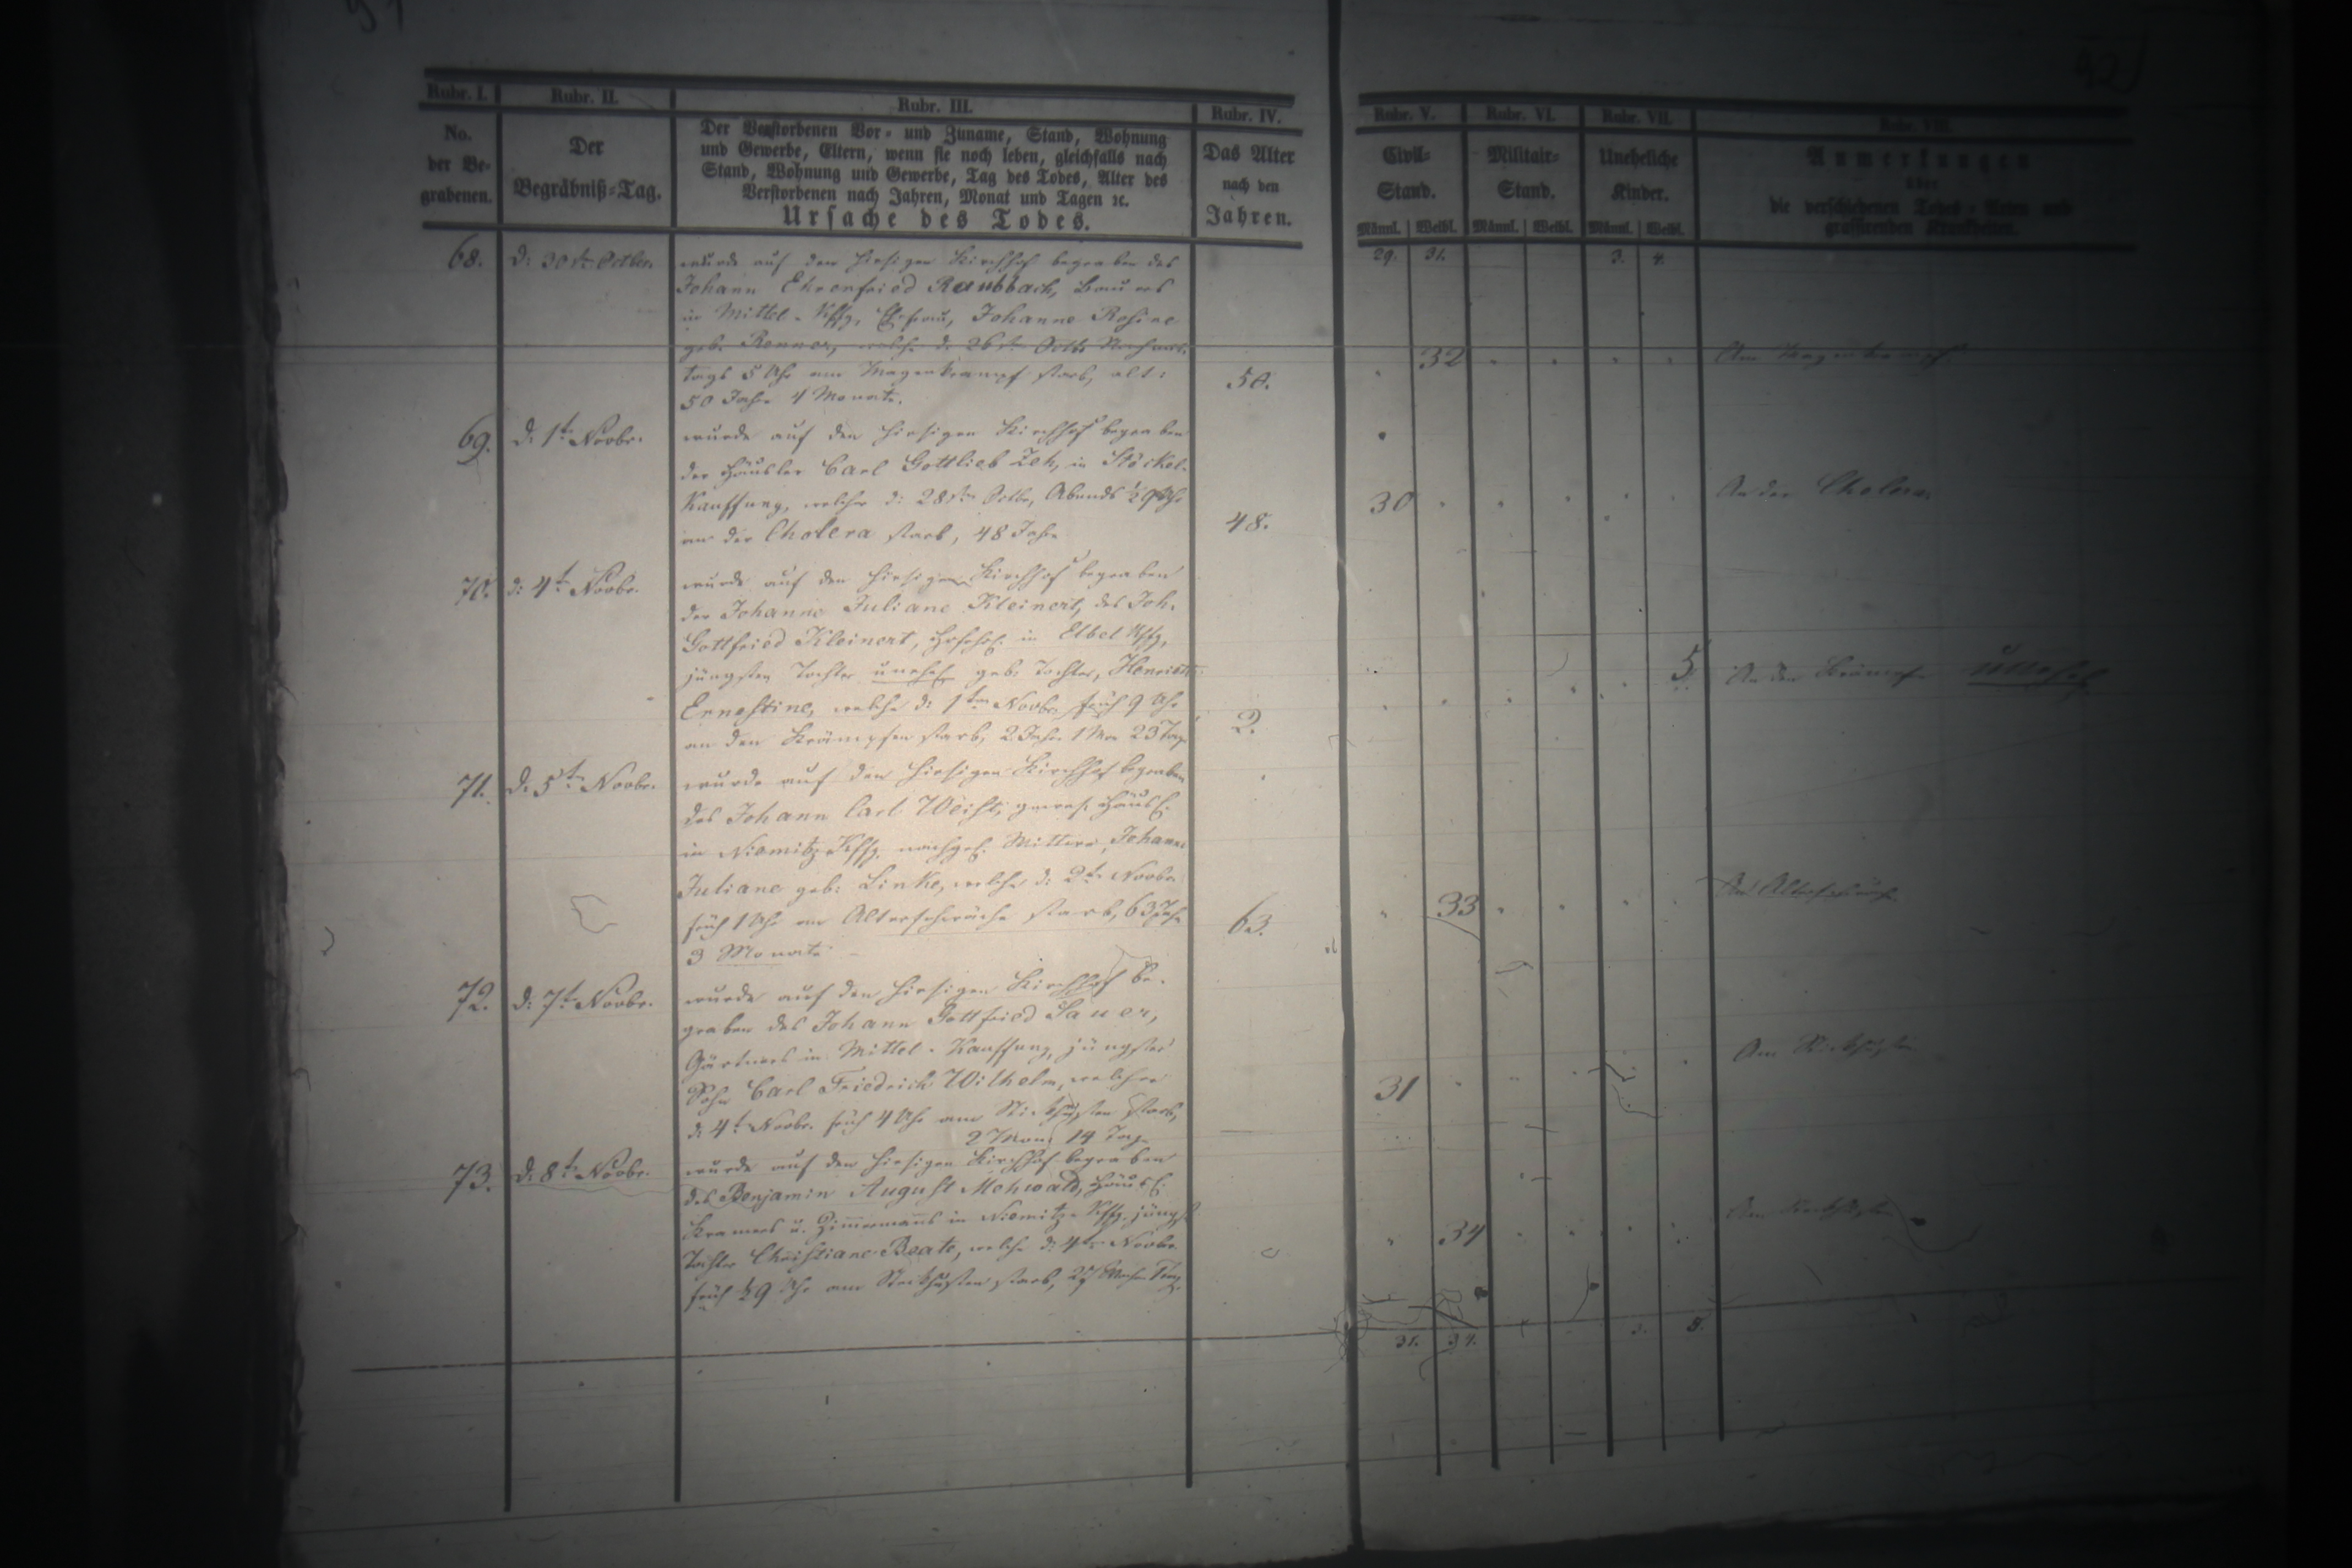 91
92
Rubr. I.
No.
der Be-
grabenen.
Rubr. II.
Der
Begräbniß-Tag.
Rubr. III.
Der Verstorbenen Vor- und Zuname, Stand, Wohnung
und Gewerbe, Eltern, wenn sie noch leben, gleichfalls nach
Stand, Wohnung und Gewerbe, Tag des Todes, Alter des
Verstorbenen nach Jahren, Monat und Tagen ꝛc.
Ursache des Todes.
Rubr. IV.
Das Alter
nach den
Jahren.
Rubr. V.
Civil-
Stand.
Männl. Weibl.
Rubr. VI.
Militair-
Stand.
Männl. Weibl.
Rubr. VII.
Uneheliche
Kinder.
Männl. Weibl.
Rubr. VIII.
Anmerkungen
über
die verschiedenen Todes-Arten und
grassirenden Krankheiten.
29. 31. 3. 4.
68. d: 30st Octbr.
wurde auf den hiesigen Kirchhof begraben des
Johann Ehrenfried Raubbach, Bauers
in Mittel-Kffg, Ehefrau, Johanne Rosine
geb. Renner, welche d. 26st Octbr Nachmit-
tags 5 Uhr am Magenkrampf starb, alt:
50 Jahr 4 Monate.
50.
32
Am Magenkrampf
69. d. 1t Novbr.
wurde auf den hiesigen Kirchhof begraben
der Häusler Carl Gottlieb Zeh, in Stöckel-
Kauffung, welcher d: 28st Octbr, Abends ½9 Uhr
an der Cholera starb, 48 Jahr
48.
30
An der Cholera
70. d: 4t Novbr.
wurde auf den hiesigen Kirchhof begraben
der Johanne Juliane Kleinert, des Joh.
Gottfried Kleinert, in Elbel Kffg,
jüngsten Tochter unehel geb. Tochter, Henriette
Ernestine, welche d: 1ten Novbr. früh 9 Uhr
an den Krämpfen starb, 2 Jahr 1 Mon 23 Tage
2.
5.
An den Krämpfen unehel
71. d. 5t Novbr.
wurde auf den hiesigen Kirchhof begraben
des Johann Carl Weist, gewes. Häusl.
in Niemitz-Kffg. nachgel. Wittwe, Johanne
Juliane geb: Linke, welche d: 2t Novbr
früh 1 Uhr an Altersschwäche starb, 63 Jahr
3 Monate
63.
33
An Altersschwäche
72. d: 7t Novbr.
wurde auf den hiesigen Kirchhof be-
graben des Johann Gottfried Sauer,
Gärtners in Mittel-Kauffung, jüngster
Sohn Carl Friedrich Wilhelm, welcher
d: 4t Novbr. früh 4 Uhr am Stickhusten starb,
2 Mon. 14 Tage
31
Am Stickhusten
73. d. 8t Novbr.
wurde auf den hiesigen Kirchhof begraben
des Benjamin August Mehwald, Häusl.
Kramers u. Zimmermanns in Niemitz-Kffg. jüngst
Tochter Christiane Beate, welche d: 4t Novbr
früh ½9 Uhr am Stickhusten starb,
34
Am Stickhusten
31. 34. 3. 5.